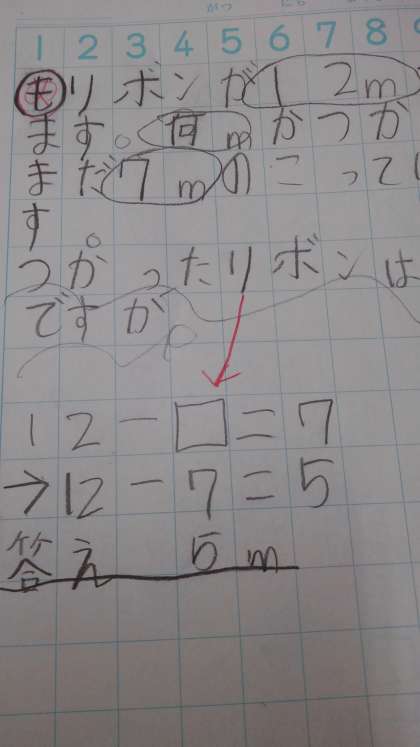 1 2 3 4 5 6 7 8
も リボンが12m
ます。何mかつか
まだ7mのこってい
す。
つかったリボンは
ですか
12-□=7
→12-7=5
答え 5m